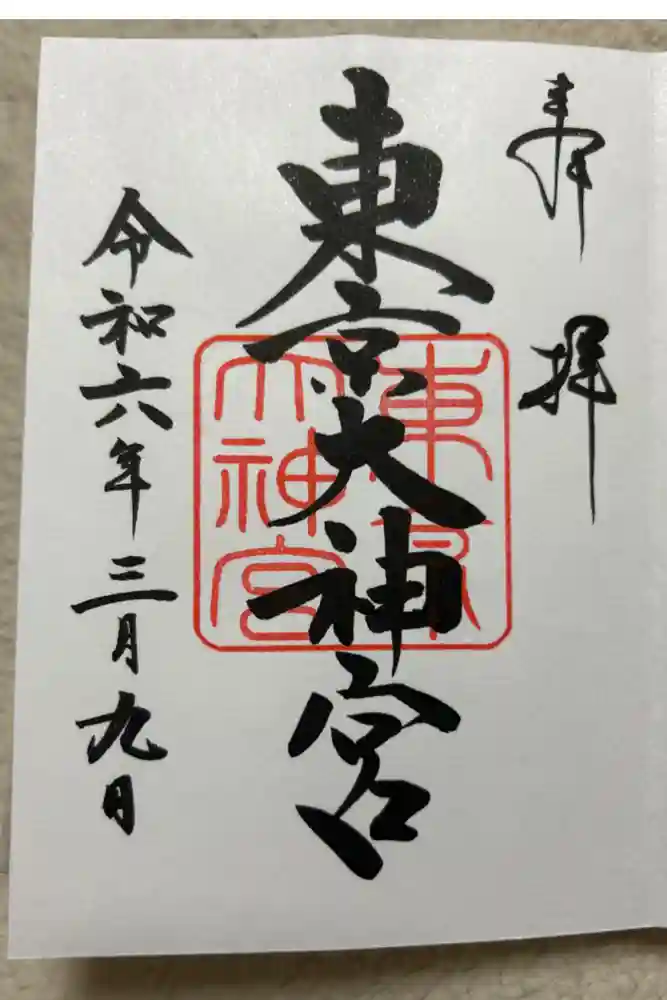 奉拝
東京大神宮
東京
大神宮
令和六年三月九日